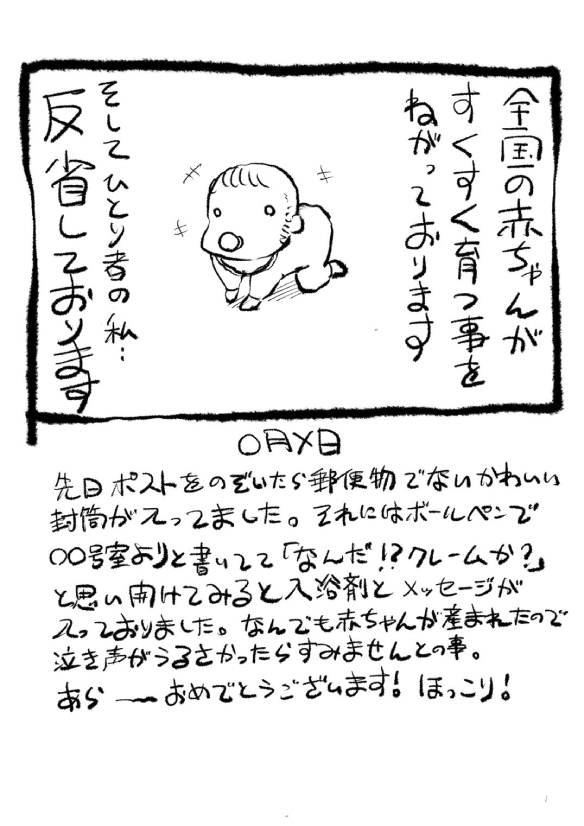 全国の赤ちゃんが
すくすく育つ事を
ねがっております
そしてひとり者の私…
反省しております
〇月×日
先日ポストをのぞいたら郵便物でないかわいい
封筒が入ってました。それにはボールペンで
〇〇号室よりと書いてて「なんだ!?クレームか?」
と思い開けてみると入浴剤とメッセージが
入っておりました。なんでも赤ちゃんが産まれたので
泣き声がうるさかったらすみませんとの事。
あら〜おめでとうございます!ほっこり!